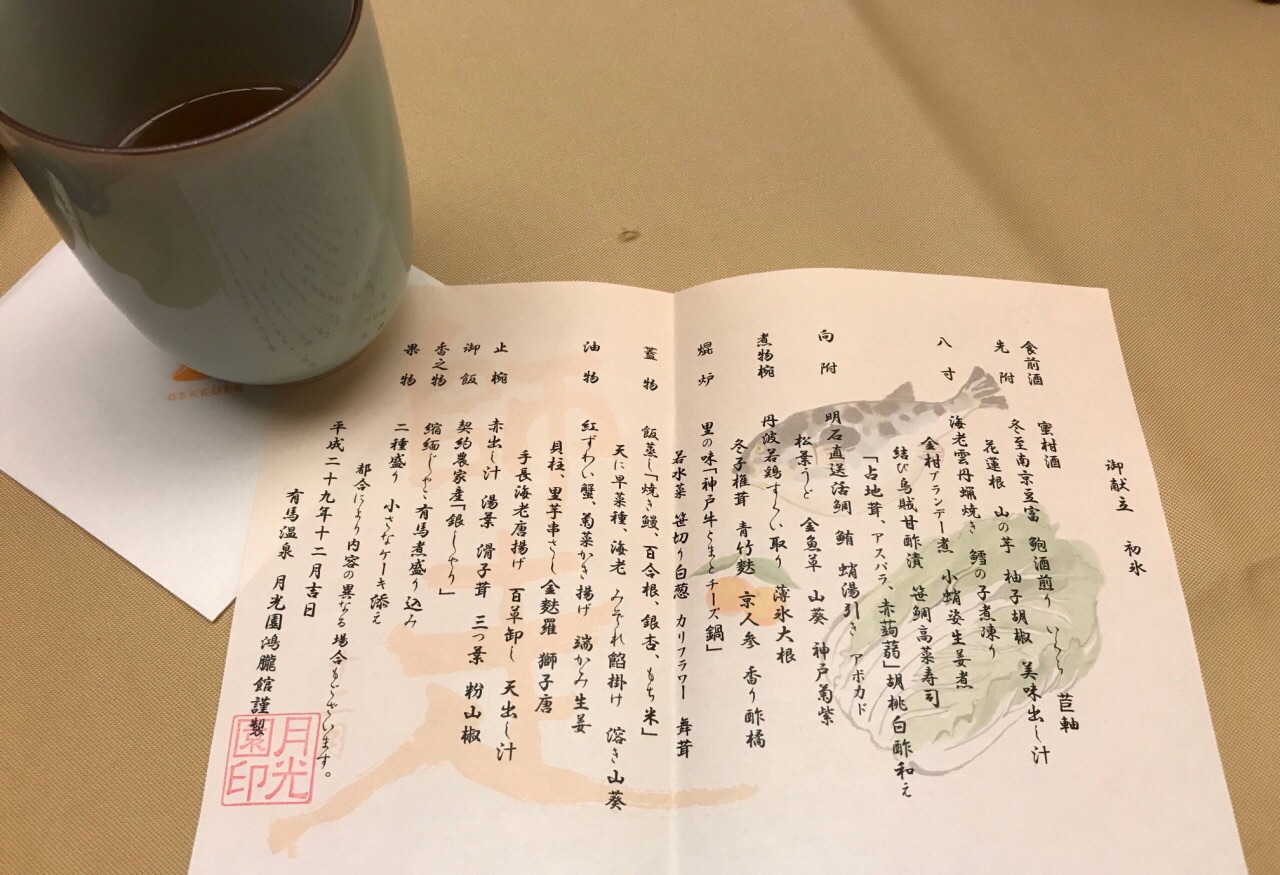 御献立 初氷
食前酒 蜜柑酒
先附 冬至南京豆富 鮑酒煎り いくら 苣軸
花蓮根 山の芋 柚子胡椒 美味出し汁
八寸 海老雲丹蝋焼き 鱈の子煮凍り
金柑ブランデー煮 小蛸姿生姜煮
結び烏賊甘酢漬 笹鯛高菜寿司
「占地茸、アスパラ、赤蒟蒻」胡桃白酢和え
向附 明石直送活鯛 鮪 蛸湯引き アボカド
松葉うど 金魚草 山葵 神戸菊紫
煮物椀 丹波若鶏すくい取り 薄氷大根
冬子椎茸 青竹麩 京人参 香り酢橘
焜炉 里の味「神戸牛とまとチーズ鍋」
若水菜 笹切り白葱 カリフラワー 舞茸
蓋物 飯蒸し「焼き鰻、百合根、銀杏、もち米」
天に早菜種、海老 みぞれ餡掛け 溶き山葵
油物 紅ずわい蟹、菊菜かき揚げ 端かみ生姜
貝柱、里芋串さし 金麩羅 獅子唐
手長海老唐揚げ 百草卸し 天出し汁
止椀 赤出し汁 湯葉 滑子茸 三つ葉 粉山椒
御飯 契約農家産「銀しゃり」
香之物 縮緬じゃこ有馬煮盛り込み
果物 二種盛り 小さなケーキ添え
都合により内容の異なる場合もございます。
平成二十九年十二月吉日
有馬温泉 月光園鴻朧館謹製
月光園印
師走
GEKKOEN